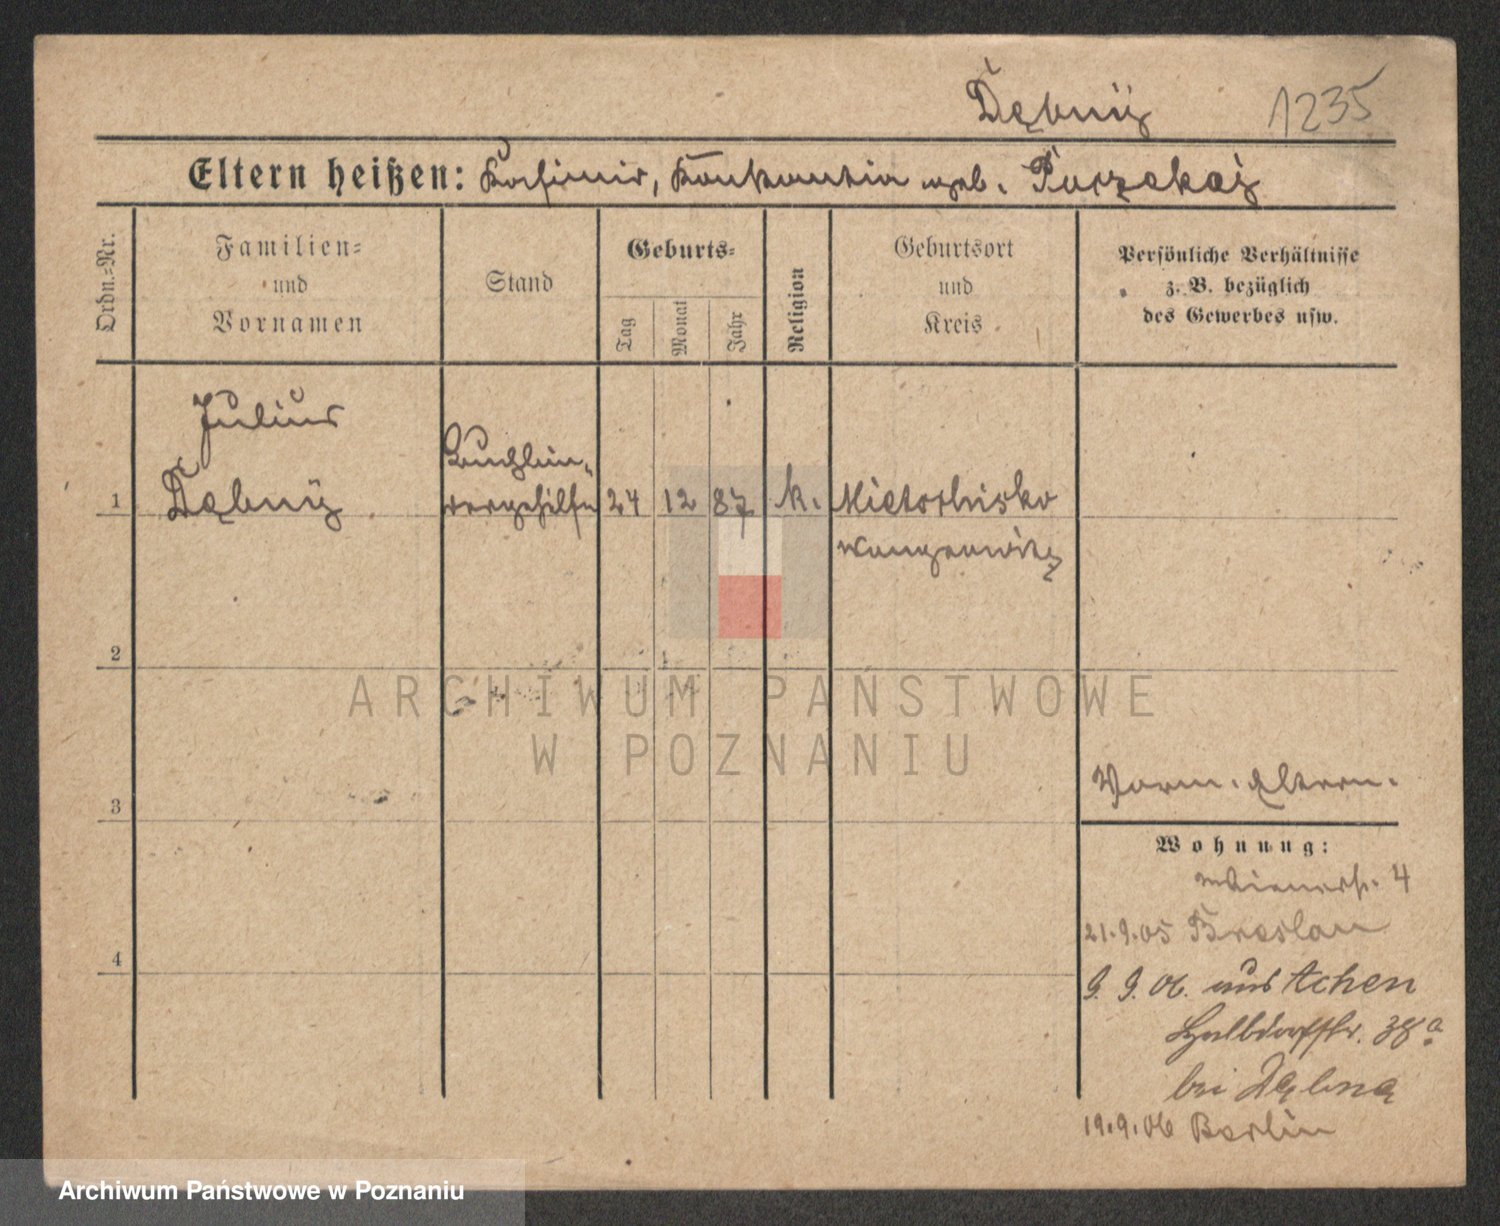 Dębnÿ 1235
Eltern heißen: Kasimir, Konstantia geb.
Ordn.=Nr.
Familien=
und
Vornamen
Stand
Geburts=
Tag
Monat
Jahr
Religion
Geburtsort
und
Kreis
Persönliche Verhältnisse
z. B. bezüglich
des Gewerbes usw.
Julius
1 Dębnÿ 24 12 87 k. Mietschisko
Wongrowitz
2
ARCHIWUM PAŃSTWOWE
W POZNANIU
3
Vorm. Eltern.
Wohnung:
Wienerstr. 4
4
21.9.05 Breslau
9. 9. 06. aus Achen
Halbdorfstr. 38a
bei
19.9.06 Berlin
Archiwum Państwowe w Poznaniu